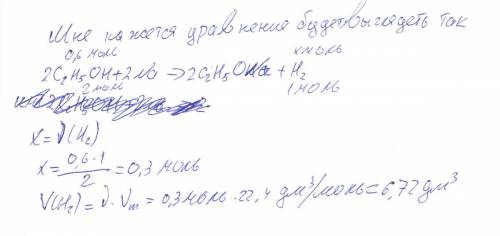 Мне кажется уравнение будет выглядеть так
0,6 моль х моль
2C₂H₅OH+2Na→2C₂H₅ONa+H₂
2 моль 1 моль
x=ν(H₂)
x=0,6·1/2=0,3 моль
V(H₂)=ν·Vm=0,3моль·22,4 дм³/моль=6,72 дм³